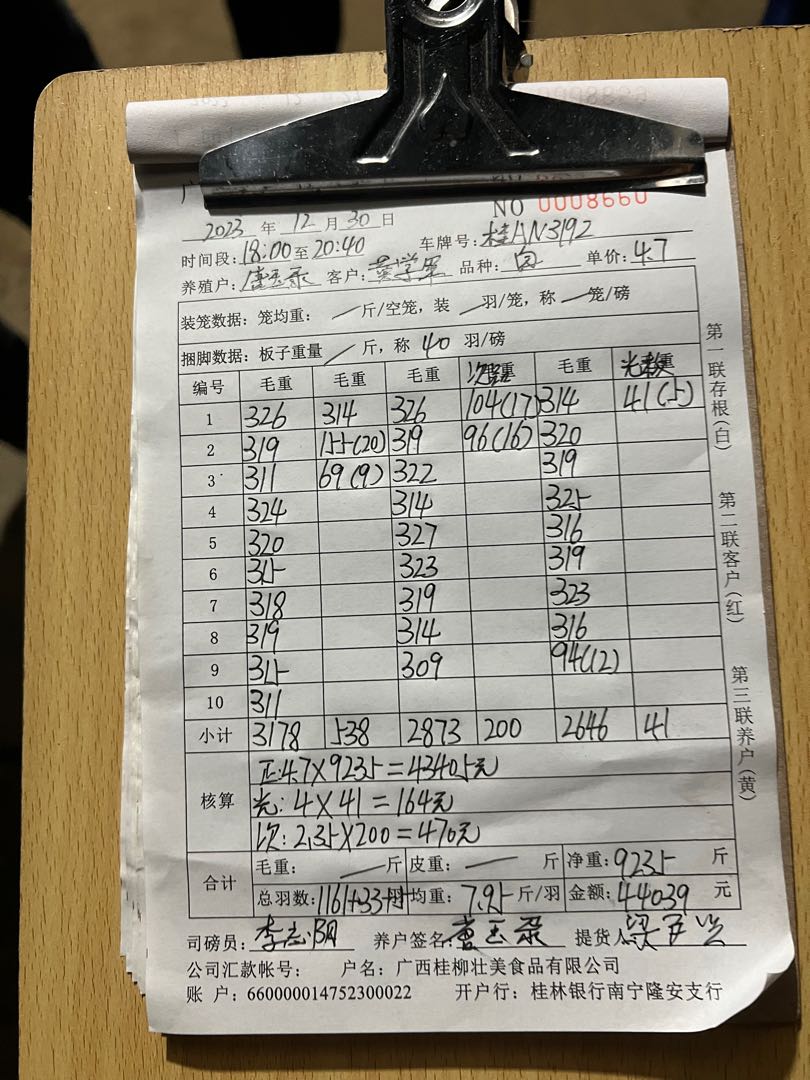 NO 0008660
2023 年 12 月 30 日
时间段: 18:00 至 20:40 车牌号: 桂AN3192
养殖户: 唐玉录 客户: 黄学军 品种: 白 单价: 4.7
装笼数据: 笼均重: — 斤/空笼, 装 — 羽/笼, 称 — 笼/磅
捆脚数据: 板子重量 — 斤, 称 40 羽/磅
编号 毛重 毛重 毛重 次 毛重 光
1 326 314 326 104(17) 314 41(5)
2 319 155(20) 319 96(16) 320
3 311 69(9) 322 319
4 324 314 325
5 320 327 316
6 315 323 319
7 318 319 323
8 319 314 316
9 315 309 94(12)
10 311
小计 3178 538 2873 200 2646 41
核算
正: 4.7×9235=43405元
光: 4×41=164元
次: 2.35×200=470元
合计
毛重: — 斤 皮重: — 斤 净重: 9235 斤
总羽数: 1161+33+ 均重: 7.95 斤/羽 金额: 44039 元
司磅员: 李志阳 养户签名: 唐玉录 提货人: 梁
公司汇款帐号: 户名: 广西桂柳壮美食品有限公司
账 户: 660000014752300022 开户行: 桂林银行南宁隆安支行
第一联存根(白)
第二联客户(红)
第三联养户(黄)